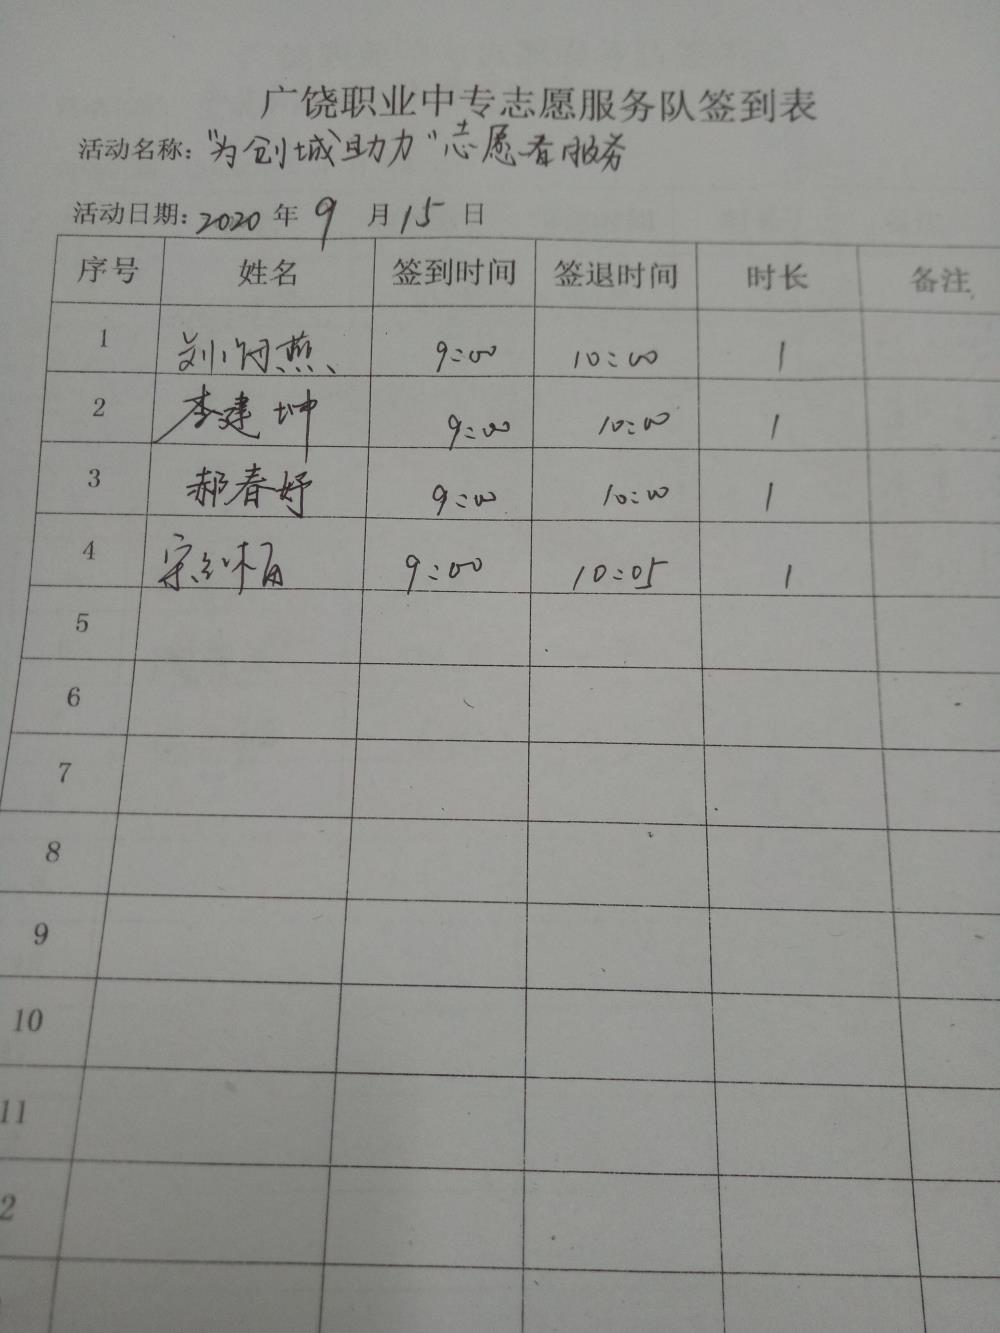 广饶职业中专志愿服务队签到表
活动名称："为创城助力"志愿者服务
活动日期：2020年9月15日
序号 姓名 签到时间 签退时间 时长 备注
1 刘 燕 9:00 10:00 1
2 李建坤 9:00 10:00 1
3 郝春妤 9:00 10:00 1
4 宋 9:00 10:05 1
5
6
7
8
9
10
11
2